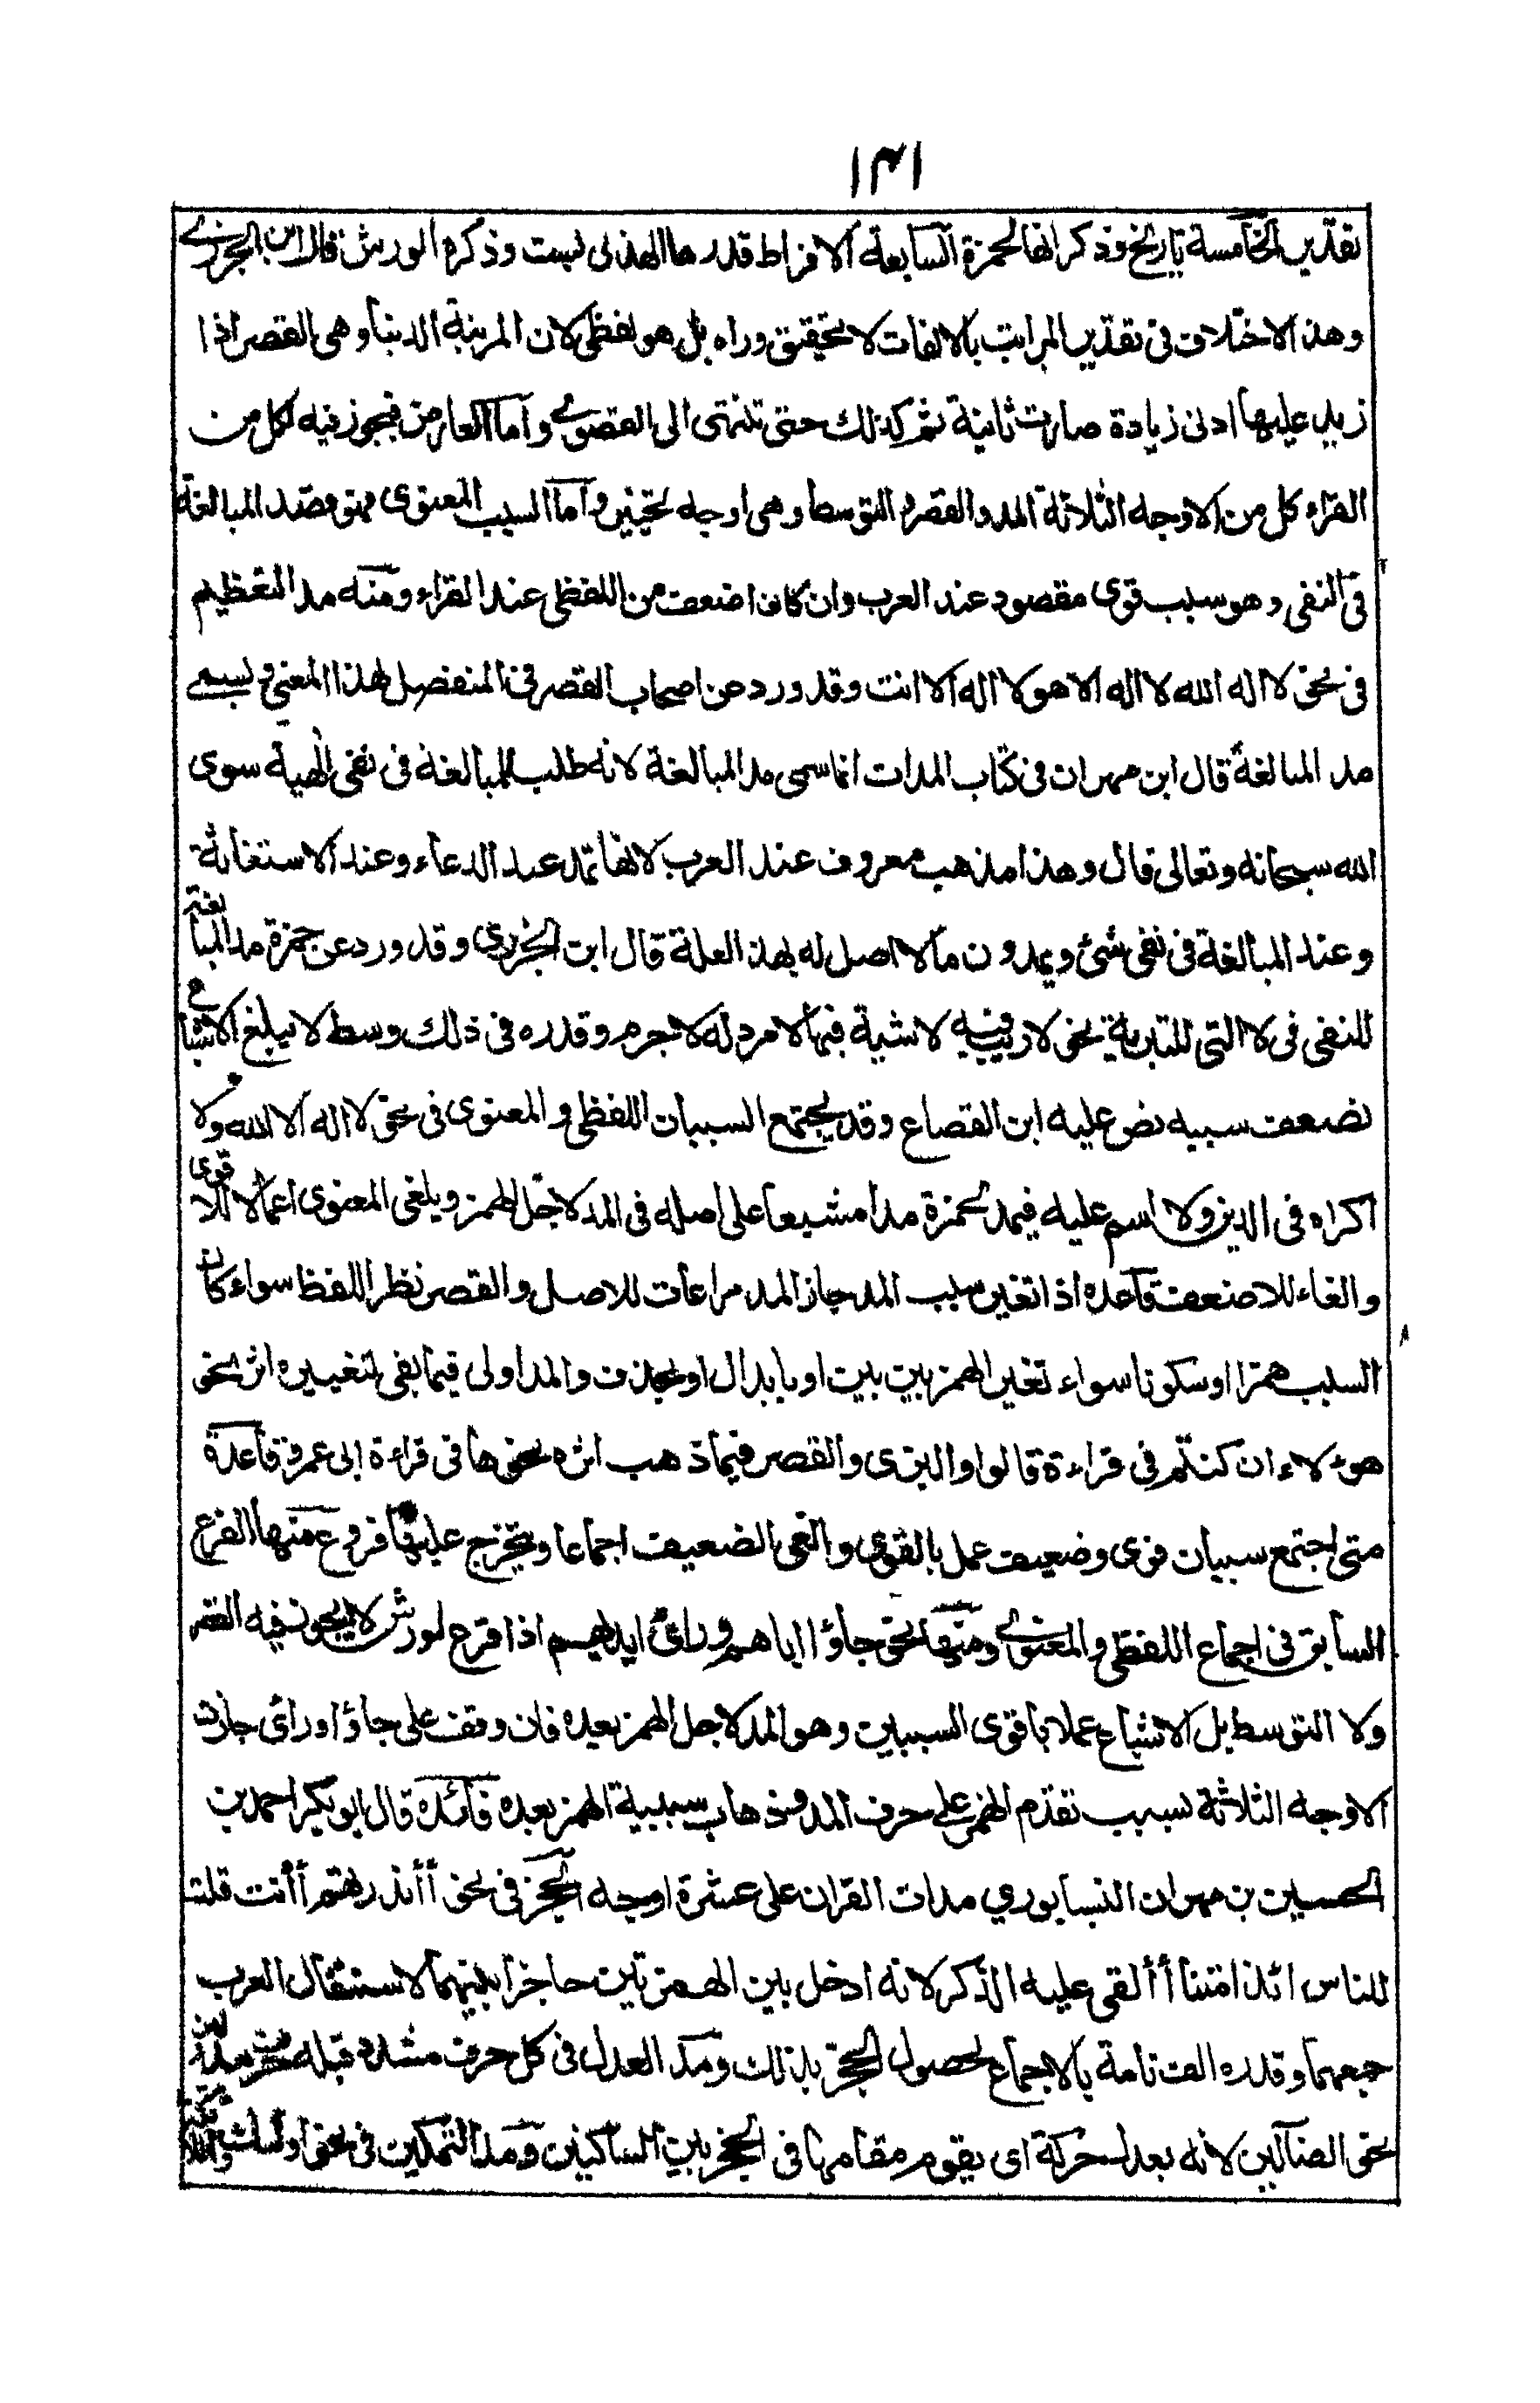 ١٣١
تقدير الخامسة باربع وذكر انها لحمزة السابعة الافراط قدرها الهذلى بست وذكره لورش قال ابن الجزرى
وهذا الاختلاف فى تقدير المراتب بالالفات لا تحقيق وراه بل هو لفظى لان المرتبة الدنيا وهى القصر اذا
زيد عليها ادنى زيادة صارت ثانية ثم كذلك حتى تنتهى الى القصوى واما العارض فيجوز فيه لكل من
القراء كل من الاوجه الثلاثة المد والقصر والتوسط وهى اوجه تخيير واما السبب المعنوى فهو قصد المبالغة
فى النفى وهو سبب قوى مقصود عند العرب وان كان اضعف من اللفظى عند القراء ومنه مد التعظيم
فى نحو لا اله الله لا اله الا هو لا اله الا انت وقد ورد من اصحاب القصر فى المنفصل لهذا المعنى ويسمى
مد المبالغة قال ابن مهران فى كتاب المدات انما سمى مد المبالغة لانه طلب للمبالغة فى نفى الهية سوى
الله سبحانه وتعالى قال وهذا مذهب معروف عند العرب لانها تمد عند الدعاء وعند الاستغاثة
وعند المبالغة فى نفى شئ ويمدون ما لا اصل له بهذ العلة قال ابن الجزرى وقد ورد عن حمزة مد المبالغة
للنفى فى لا التى للتبرية نحو لا ريب فيه لا شية فيها لا مرد له لا جرم وقدره فى ذلك وسط لا يبلغ الاشباع
لضعف سببه نص عليه ابن القصاع وقد يجتمع السببان اللفظى والمعنوى فى نحو لا اله الا الله ولا
اكراه فى الدين ولا اسم عليه فيمد لحمزة مدا مشبعا على اصله فى المد لاجل الهمز ويلغى المعنوى اعمالا للاقوى
والغاء للاضعف قاعده اذا تغير سبب المد جاز المد مراعات للاصل والقصر نظر اللفظ سواء كان
السبب همزا او سكونا سواء تغير الهمز بين بين او بابدال او بحذف والمد اولى فيما بقى لتغييره اثر نحو
هوءلاء ان كنتم فى قراءة قالوا والبزى والقصر فيما ذهب اثره نحو ها فى قراءة ابى عمرو قاعدة
متى اجتمع سببان قوى وضعيف عمل بالقوى والغى الضعيف اجماعا ويتخرج عليها فروع منها الفرع
السابق فى اجماع اللفظى والمعنوى ومنها نحو جاؤا اباهم ورائ ايديهم اذا قرء لورش لا يجوز فيه القصر
ولا التوسط بل الاشباع عملا باقوى السببين وهو المد لاجل الهمز بعده فان وقف على جاؤا او رائ جازت
الاوجه الثلاثة بسبب تقدم الهمز على حرف المد وذهاب سببية الهمز بعده فائده قال ابو بكر احمد بن
الحسين بن مهران النيسابوري مدات القران على عشرة اوجه الحجز فى نحو أأنذرتهم أأنت قلت
للناس ائذا متنا أألقى عليه الذكر لانه ادخل بين الهمزتين حاجزا بينهما لاستثقال العرب
جمعهما وقدره الف تامة بالاجماع لحصول الحجز بذلك ومد العدل فى كل حرف مشدد قبله حرف مد ولين
نحو الضآلين لانه يعدل حركة اى يقوم مقامها فى الحجز بين الساكنين ومد التمكين فى نحو اولئك والملائكة